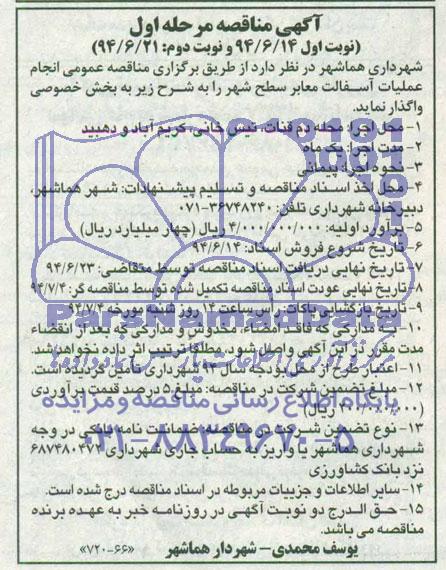 آگهی مناقصه مرحله اول
(نوبت اول ۹۴/۶/۱۴ و نوبت دوم: ۹۴/۶/۲۱)
شهرداری هماشهر در نظر دارد از طریق برگزاری مناقصه عمومی انجام
عملیات آسفالت معابر سطح شهر را به شرح زیر به بخش خصوصی
واگذار نماید.
۱- محل اجرا: محله دم قنات، کریم آباد و دهبید
۲- مدت اجرا: یک ماه
۳- نحوه اجرا: پیمانی
۴- محل اخذ اسناد مناقصه و تسلیم پیشنهادات: شهر هماشهر،
دبیرخانه شهرداری تلفن: ۳۶۷۴۸۲۴۰-۰۷۱
۵- برآورد اولیه: ۴/۰۰۰/۰۰۰/۰۰۰ ریال (چهار میلیارد ریال)
۶- تاریخ شروع فروش اسناد: ۹۴/۶/۱۴
۷- تاریخ نهایی دریافت اسناد مناقصه توسط متقاضی: ۹۴/۶/۲۳
۸- تاریخ نهایی عودت اسناد مناقصه تکمیل شده توسط مناقصه گر: ۹۴/۷/۴
۹- تاریخ بازگشایی پاکات: راس ساعت ۱۴ روز شنبه مورخه ۹۴/۷/۴
۱۰- به مدارکی که فاقد امضاء، مخدوش و مدارکی که بعد از انقضاء
مدت مقرر در این آگهی واصل شود، مطلقا ترتیب اثر داده نخواهد شد.
۱۱- اعتبار طرح از محل بودجه سال ۹۴ شهرداری تامین گردیده است.
۱۲- مبلغ تضمین شرکت در مناقصه: مبلغ ۵ درصد قیمت برآوردی
(۲۰۰/۰۰۰/۰۰۰ ریال)
۱۳- نوع تضمین شرکت در مناقصه: ضمانت نامه بانکی در وجه
شهرداری هماشهر یا واریز به حساب جاری شهرداری ۶۸۷۴۸۰۴۷۲
نزد بانک کشاورزی
۱۴- سایر اطلاعات و جزییات مربوطه در اسناد مناقصه درج شده است.
۱۵- حق الدرج دو نوبت آگهی در روزنامه خبر به عهده برنده
مناقصه می باشد.
یوسف محمدی – شهردار هماشهر «۷۲۰-۶۶»
ParsNamadData
پایگاه اطلاع رسانی مناقصه و مزایده
۰۲۱-۸۸۳۴۹۶۷۰-۵